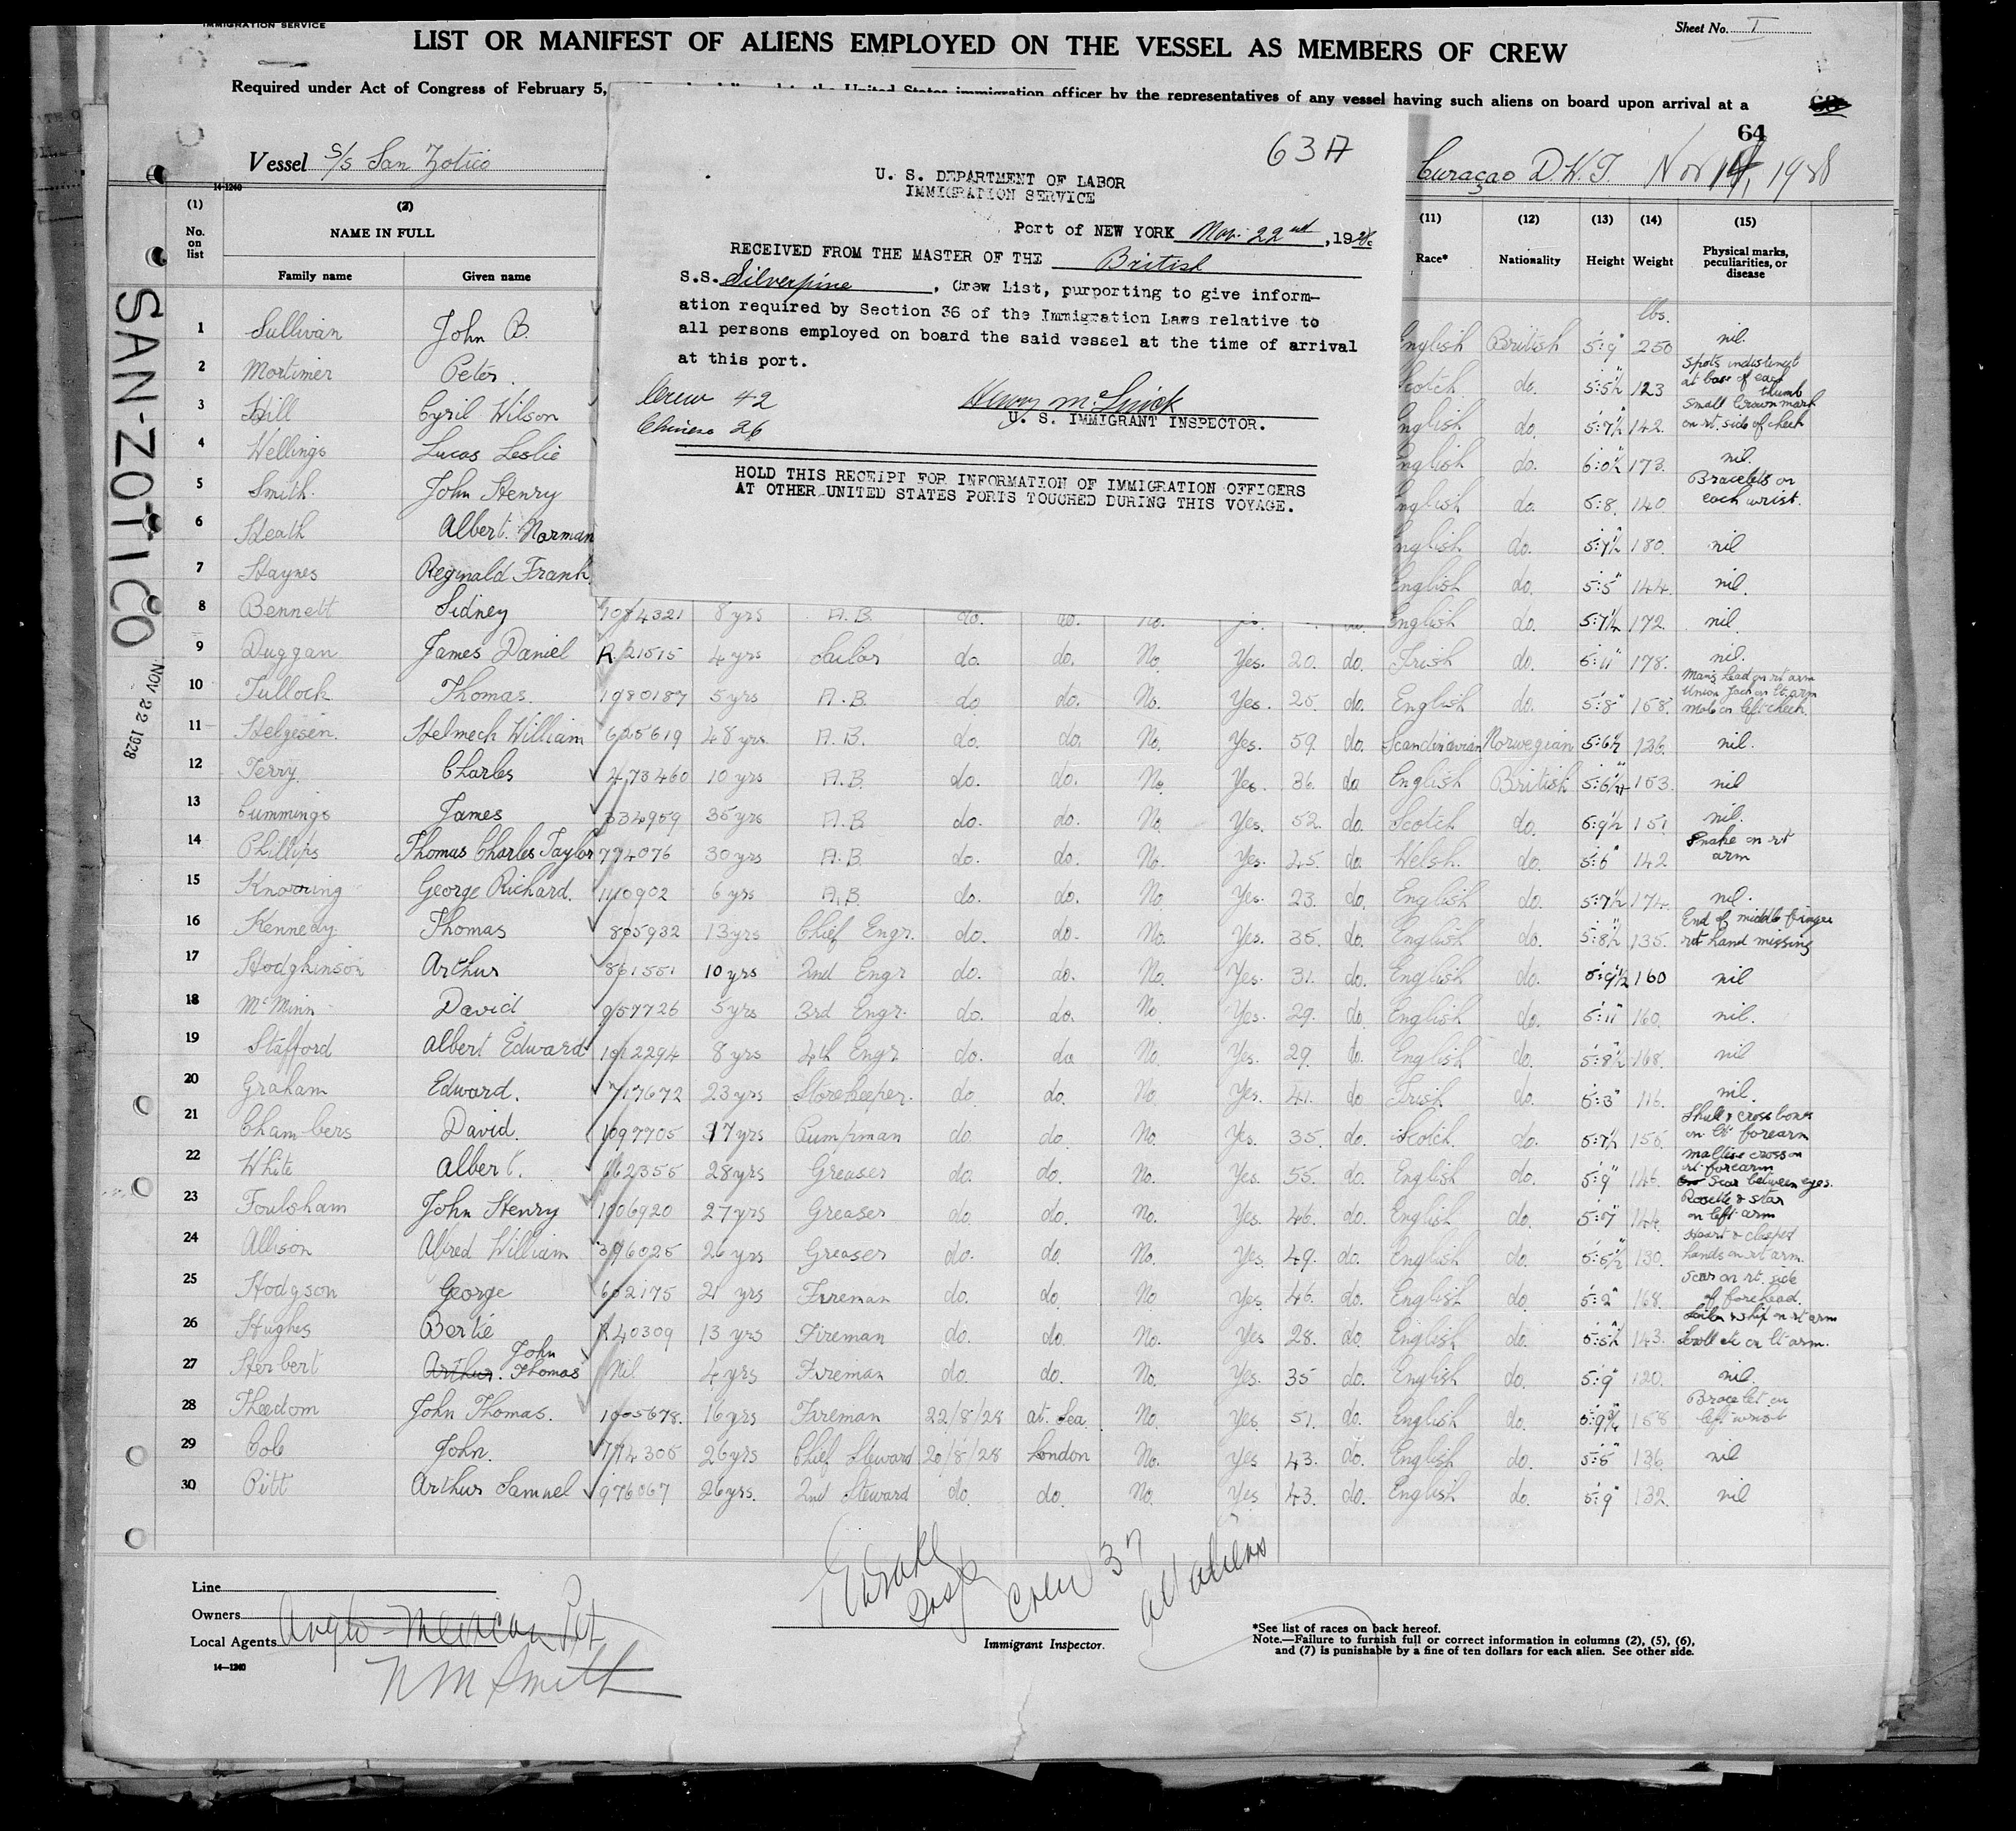 IMMIGRATION SERVICE
Sheet No. I
LIST OR MANIFEST OF ALIENS EMPLOYED ON THE VESSEL AS MEMBERS OF CREW
Required under Act of Congress of February 5, United States immigration officer by the representatives of any vessel having such aliens on board upon arrival at a
64
Vessel S/S San Zotico
Curaçao D.W.I. Nov 14, 1928
14-1240
63A
U. S. DEPARTMENT OF LABOR
IMMIGRATION SERVICE
Port of NEW YORK Nov. 22nd, 1928.
RECEIVED FROM THE MASTER OF THE British
S.S. Silverpine, Crew List, purporting to give inform-
ation required by Section 36 of the Immigration Laws relative to
all persons employed on board the said vessel at the time of arrival
at this port.
Crew 42
Chinese 26
U. S. IMMIGRANT INSPECTOR.
HOLD THIS RECEIPT FOR INFORMATION OF IMMIGRATION OFFICERS
AT OTHER UNITED STATES PORTS TOUCHED DURING THIS VOYAGE.
SAN-ZOTICO
NOV 22 1928
(1) (2) (11) (12) (13) (14) (15)
No. on list NAME IN FULL Race* Nationality Height Weight Physical marks, peculiarities, or disease
Family name Given name
lbs.
1 Sullivan John B. English British 5'9" 250 nil.
2 Mortimer Peter. Scotch do. 5:5½ 123 Spots indistinct at base of each thumb
3 Hill Cyril Wilson English do. 5:7½ 142. Small brown mark on rt. side of cheek
4 Wellings Lucas Leslie English do. 6:0½ 173. nil.
5 Smith. John Henry English do. 5:8. 140. Bracelets on each wrist.
6 Heath Albert Norman English do. 5:7½ 180. nil
7 Haynes Reginald Frank English do. 5:5" 144. nil.
8 Bennett Sidney 1084321 8 yrs A.B. do. do. No. English do. 5:7½ 172. nil.
9 Duggan James Daniel R 21515 4 yrs Sailor do. do. No. Yes. 20. do. Irish do. 5:11" 178. nil.
10 Tullock Thomas. 1080187 5 yrs A.B. do do. No. Yes. 25. do. English do. 5:8" 158. Mans head on rt arm Union Jack on lt. arm Mole on left cheek.
11 Helgesen. Helmech William 625619 48 yrs A.B. do. do. No. Yes. 59. do. Scandinavian Norwegian 5:6½ 136. nil.
12 Terry. Charles 473460 10 yrs A.B. do. do. No. Yes. 36. do English British 5:6¼ 153. nil
13 Cummings James 334959 35 yrs A.B do. do. No. Yes. 52. do. Scotch do. 5:9½ 151 nil.
14 Phillips Thomas Charles Taylor 774076 30 yrs A.B. do. do. No. Yes. 45. do. Welsh. do. 5:6" 142 Snake on rt arm
15 Knowing George Richard. 1110902 6 yrs A.B. do. do. No. Yes. 23. do. English do. 5:7½ 174. nil.
16 Kennedy. Thomas 805932 13 yrs Chief Engr. do. do. No. Yes. 35. do. English do. 5:8½ 135. End of middle finger rt hand missing
17 Hodgkinson Arthur 861551 10 yrs 2nd Engr do. do. No. Yes. 31. do. English do. 5:9½ 160 nil
18 McMinn David 957726 5 yrs 3rd Engr. do. do. No Yes. 29. do. English do. 5:11" 160. nil.
19 Stafford Albert Edward 1012294 8 yrs 4th Engr do. do No Yes. 29. do. English do. 5:8½ 168. nil
20 Graham Edward. 717672 23 yrs Storekeeper. do. do. No. Yes. 41. do Irish do. 5:3" 116. nil.
21 Chambers David. 1097705 17 yrs Pumpman do. do. No. Yes. 35. do. Scotch. do. 5:7½ 155. Skull & cross bones on lt forearm
22 White Albert. 662355 28 yrs Greaser do. do. No. Yes. 55. do. English do. 5:9" 146. Maltese cross on rt. forearm Scar between eyes.
23 Foulsham John Henry 1106920 27 yrs Greaser do. do. No. Yes. 46. do. English do. 5:7" 144. Rosette & star on left arm
24 Allison Alfred William 396025 26 yrs Greaser do. do. No. Yes. 49. do. English do. 5:5½ 130. Heart & clasped hands on rt arm.
25 Hodgson George 602175 21 yrs Fireman do. do. No. Yes. 46. do. English do. 5:2" 168. Scar on rt. side of forehead.
26 Hughes Bertie R40309 13 yrs Fireman do. do. No. Yes 28. do. English do. 5:5½ 143. Sailor & ship on rt arm Scroll etc on lt arm.
27 Herbert Arthur. John Thomas Nil 4 yrs Fireman do. do. No. Yes. 35 do. English do. 5:9" 120. nil.
28 Theedom John Thomas. 1005678. 16 yrs Fireman 22/8/28 at Sea No. Yes 51. do. English do. 5:9¾ 158 Bracelet on left wrist
29 Cole John. 774305 26 yrs Chief Steward 20/8/28 London No. Yes 43. do. English do. 5:5" 136. nil
30 Pitt Arthur Samuel 976067 26 yrs. 2nd Steward do. do. No. Yes 43. do. English do. 5:9" 132. nil
Crew 37
all aliens
Line
Owners
Local Agents Anglo-Mexican Pet
N M Smith
14-1240
Immigrant Inspector.
*See list of races on back hereof.
Note.—Failure to furnish full or correct information in columns (2), (5), (6),
and (7) is punishable by a fine of ten dollars for each alien. See other side.